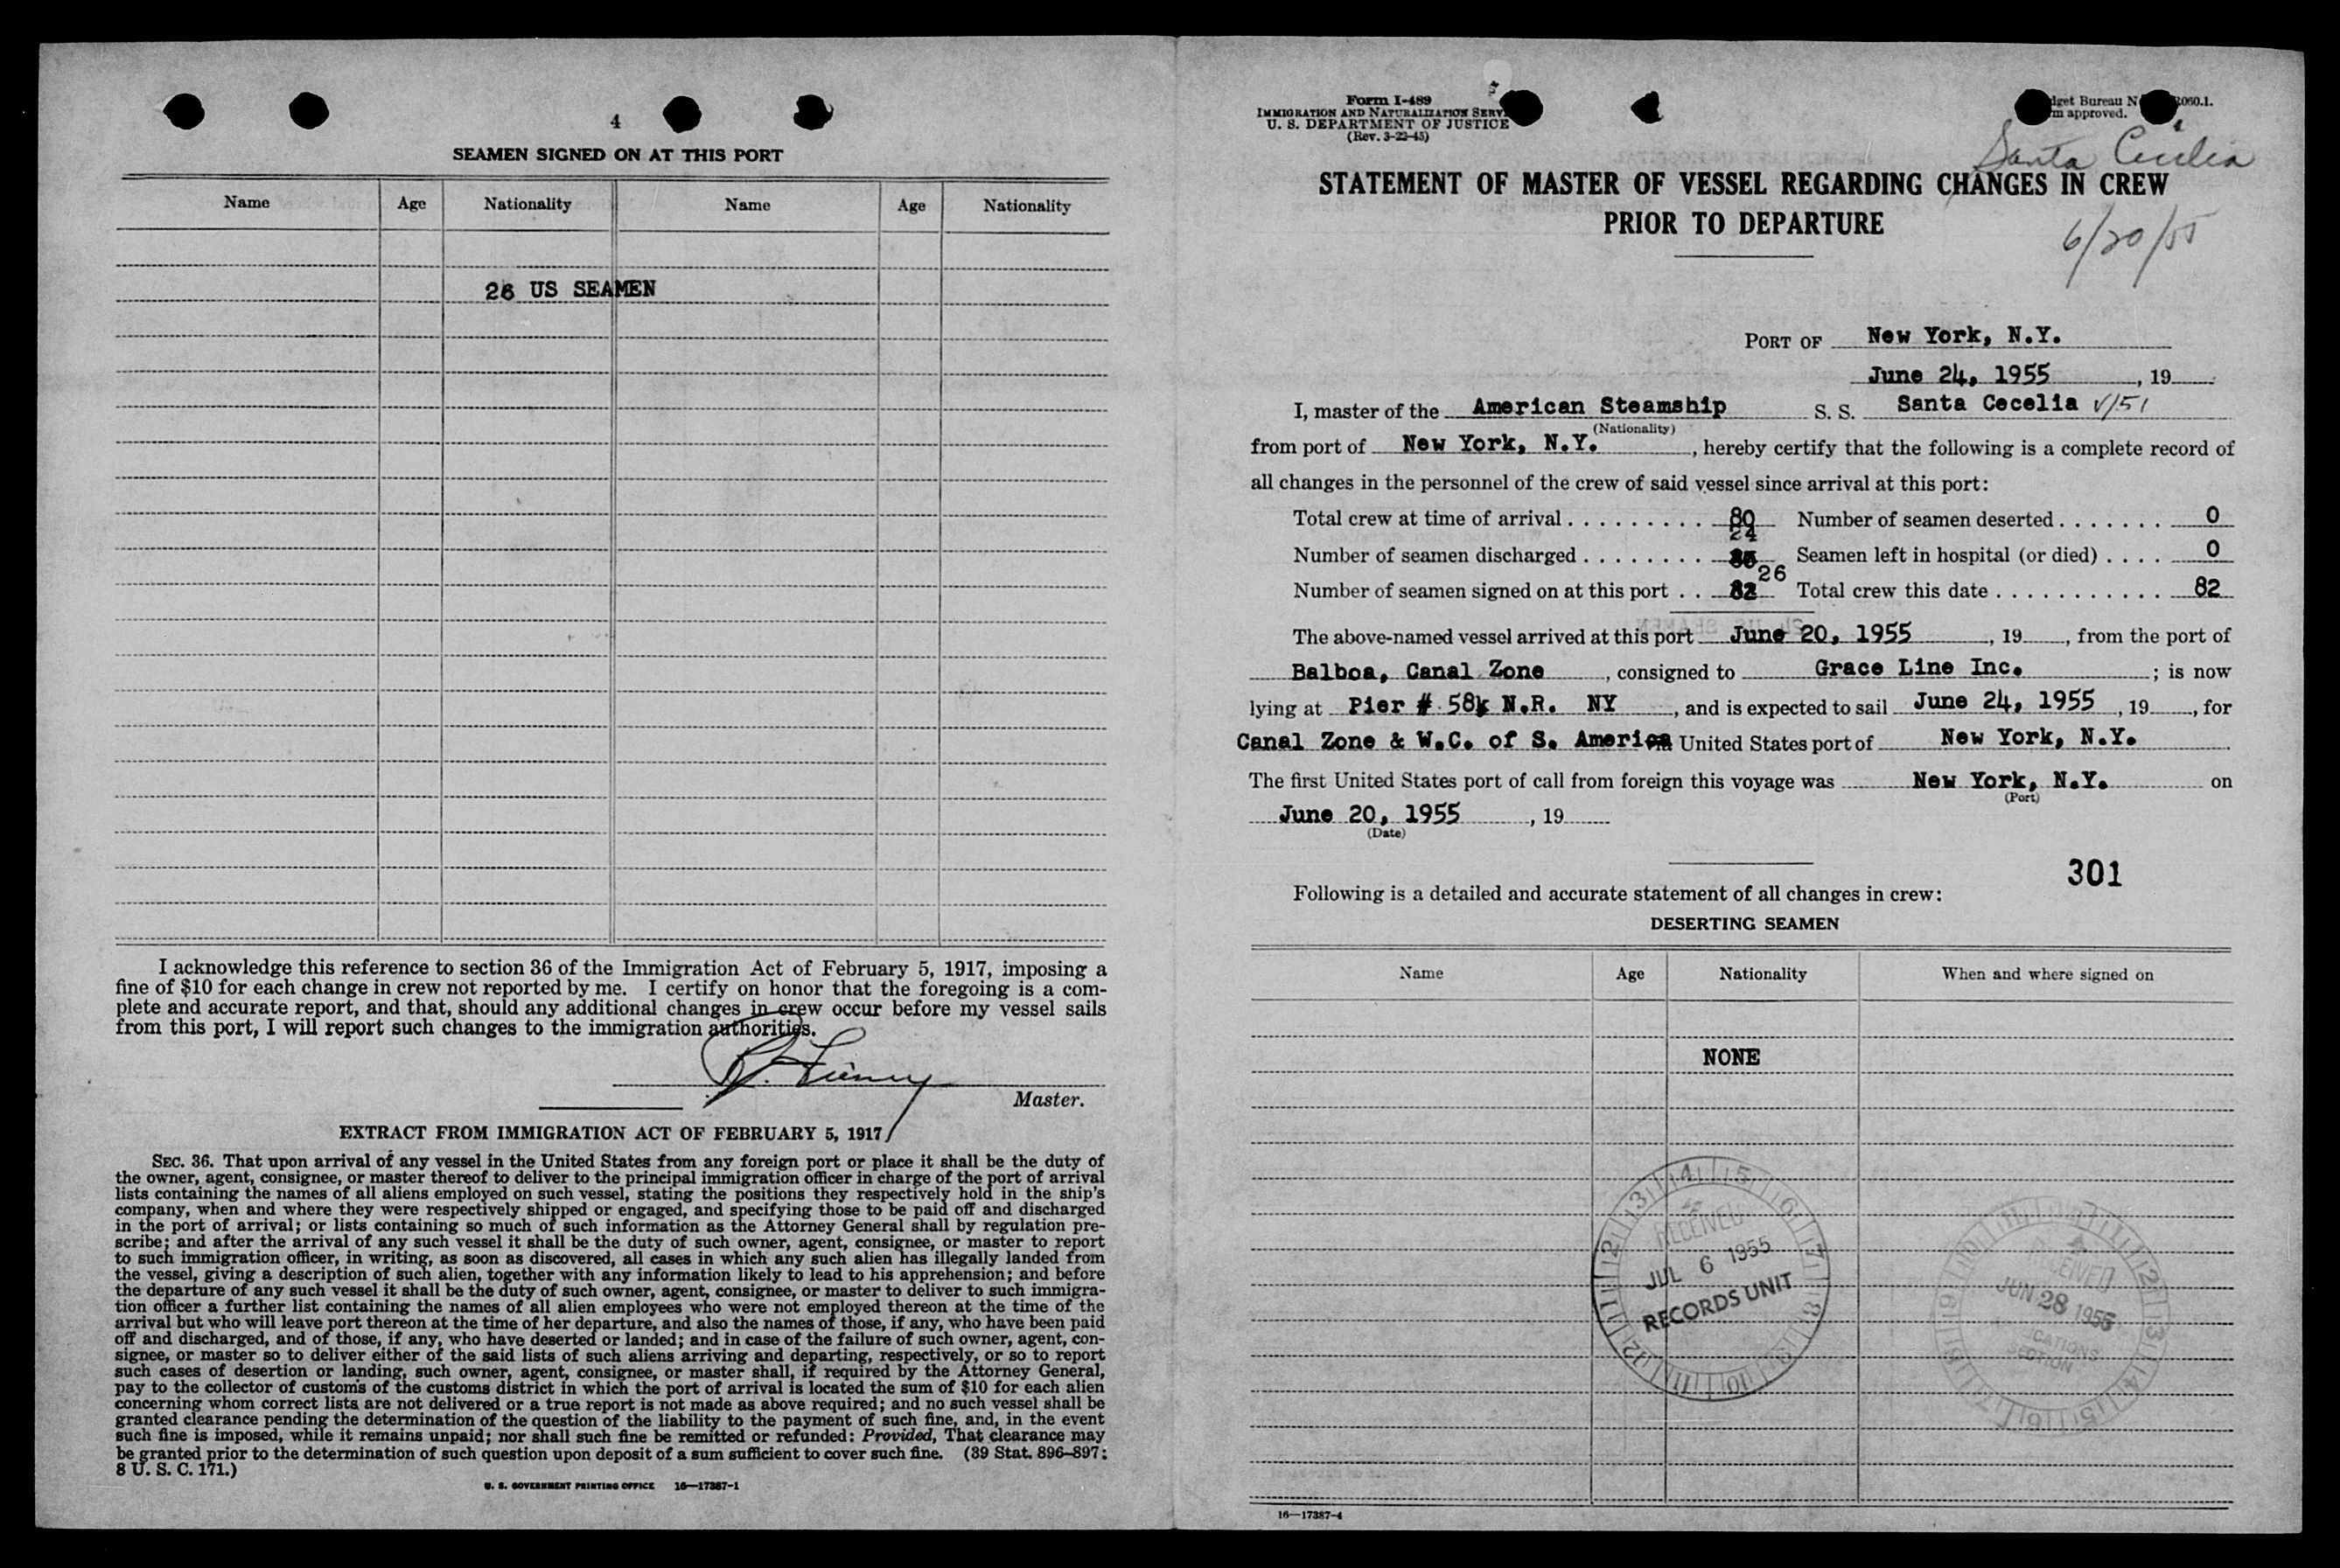 4
SEAMEN SIGNED ON AT THIS PORT
Name Age Nationality Name Age Nationality
26 US SEAMEN
I acknowledge this reference to section 36 of the Immigration Act of February 5, 1917, imposing a
fine of $10 for each change in crew not reported by me. I certify on honor that the foregoing is a com-
plete and accurate report, and that, should any additional changes in crew occur before my vessel sails
from this port, I will report such changes to the immigration authorities.
Master.
EXTRACT FROM IMMIGRATION ACT OF FEBRUARY 5, 1917
SEC. 36. That upon arrival of any vessel in the United States from any foreign port or place it shall be the duty of
the owner, agent, consignee, or master thereof to deliver to the principal immigration officer in charge of the port of arrival
lists containing the names of all aliens employed on such vessel, stating the positions they respectively hold in the ship's
company, when and where they were respectively shipped or engaged, and specifying those to be paid off and discharged
in the port of arrival; or lists containing so much of such information as the Attorney General shall by regulation pre-
scribe; and after the arrival of any such vessel it shall be the duty of such owner, agent, consignee, or master to report
to such immigration officer, in writing, as soon as discovered, all cases in which any such alien has illegally landed from
the vessel, giving a description of such alien, together with any information likely to lead to his apprehension; and before
the departure of any such vessel it shall be the duty of such owner, agent, consignee, or master to deliver to such immigra-
tion officer a further list containing the names of all alien employees who were not employed thereon at the time of the
arrival but who will leave port thereon at the time of her departure, and also the names of those, if any, who have been paid
off and discharged, and of those, if any, who have deserted or landed; and in case of the failure of such owner, agent, con-
signee, or master so to deliver either of the said lists of such aliens arriving and departing, respectively, or so to report
such cases of desertion or landing, such owner, agent, consignee, or master shall, if required by the Attorney General,
pay to the collector of customs of the customs district in which the port of arrival is located the sum of $10 for each alien
concerning whom correct lists are not delivered or a true report is not made as above required; and no such vessel shall be
granted clearance pending the determination of the question of the liability to the payment of such fine, and, in the event
such fine is imposed, while it remains unpaid; nor shall such fine be remitted or refunded: Provided, That clearance may
be granted prior to the determination of such question upon deposit of a sum sufficient to cover such fine. (39 Stat. 896-897;
8 U. S. C. 171.)
U. S. GOVERNMENT PRINTING OFFICE 16—17387-1
Form I-489
IMMIGRATION AND NATURALIZATION SERV
U. S. DEPARTMENT OF JUSTICE
(Rev. 3-22-45)
dget Bureau N 060.1.
m approved.
Santa Cecilia
STATEMENT OF MASTER OF VESSEL REGARDING CHANGES IN CREW
PRIOR TO DEPARTURE
6/20/55
PORT OF New York, N.Y.
June 24, 1955, 19
I, master of the American Steamship S. S. Santa Cecelia V/51
(Nationality)
from port of New York, N.Y., hereby certify that the following is a complete record of
all changes in the personnel of the crew of said vessel since arrival at this port:
Total crew at time of arrival 80 Number of seamen deserted 0
24
Number of seamen discharged Seamen left in hospital (or died) 0
26
Number of seamen signed on at this port 82 Total crew this date 82
The above-named vessel arrived at this port June 20, 1955, 19, from the port of
Balboa, Canal Zone, consigned to Grace Line Inc.; is now
lying at Pier # 58 N.R. NY, and is expected to sail June 24, 1955, 19, for
Canal Zone & W.C. of S. America United States port of New York, N.Y.
The first United States port of call from foreign this voyage was New York, N.Y. on
(Port)
June 20, 1955, 19
(Date)
301
Following is a detailed and accurate statement of all changes in crew:
DESERTING SEAMEN
Name Age Nationality When and where signed on
NONE
RECEIVED
JUL 6 1955
RECORDS UNIT
RECEIVED
JUN 28 1955
SECTION
16—17387-4